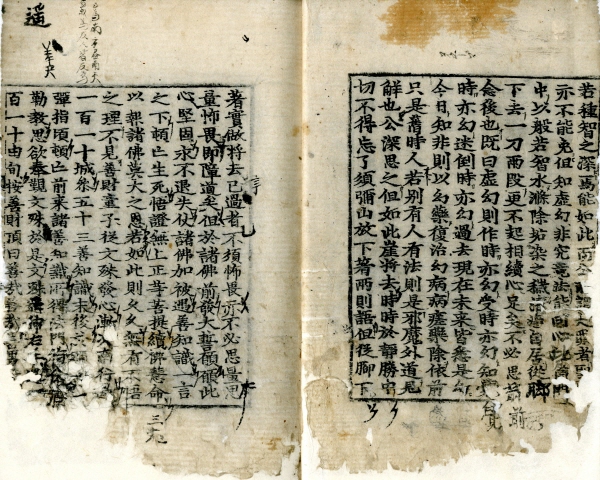 若種智之深焉能如此南公
亦不能免但知虛幻非究竟法能回心此箇門
中以般若智水滌除垢染之穢清淨自居從脚
下去一刀兩段更不起相續心足矣不必思前
念後也旣曰虛幻則作時亦幻受時亦幻知覺
時亦幻迷倒時亦幻過去現在未來皆悉是幻
今日知非則以幻藥復治幻病病瘥藥除依前
只是舊時人若別有人有法則是邪魔外道見
解也公深思之但如此崖將去時時於靜勝中
切不得忘了須彌山放下著兩則語但從脚下
前
覺
遥
著實做將去已過者不須怖畏亦不必思量思
量怖畏即障道矣但於諸佛前發大誓願願此
心堅固永不退失仗諸佛加被遇善知識一言
之下頓亡生死悟證無上正等菩提續佛慧命
以報諸佛莫大之恩若如此則久久無有不悟
之理不見善財童子從文殊發心漸次南行
一百一十城參五十三善知識末後於彌勒一
彈指頃頓亡前來諸善知識所得法門復依彌
勒教思欲奉覲文殊於是文殊遙伸右
百一十由旬按善財頂曰善哉善哉